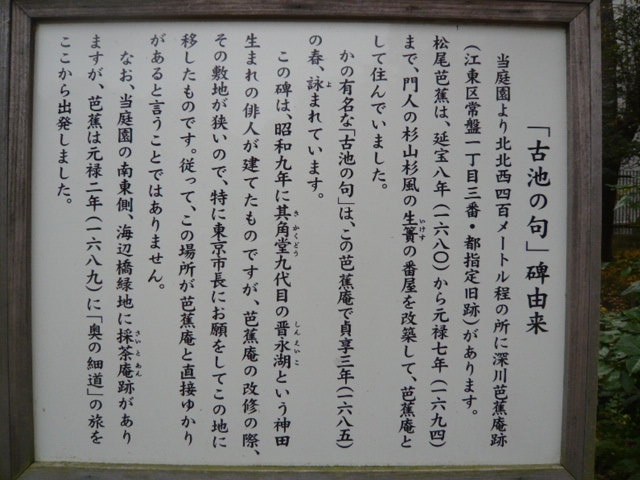 「古池の句」碑由来
当庭園より北北西四百メートル程の所に深川芭蕉庵跡
(江東区常盤一丁目三番・都指定旧跡)があります。
松尾芭蕉は、延宝八年(一六八〇)から元禄七年(一六九四)
まで、門人の杉山杉風の生簀の番屋を改築して、芭蕉庵と
して住んでいました。
かの有名な「古池の句」は、この芭蕉庵で貞享三年(一六八五)
の春、詠まれています。
この碑は、昭和九年に其角堂九代目の晋永湖という神田
生まれの俳人が建てたものですが、芭蕉庵の改修の際、
その敷地が狭いので、特に東京市長にお願をしてこの地に
移したものです。従って、この場所が芭蕉庵と直接ゆかり
があると言うことではありません。
なお、当庭園の南東側、海辺橋緑地に採茶庵跡があり
ますが、芭蕉は元禄二年(一六八九)に「奥の細道」の旅を
ここから出発しました。
いけす
よ
きかくどう
しんえいこ
さいとあん